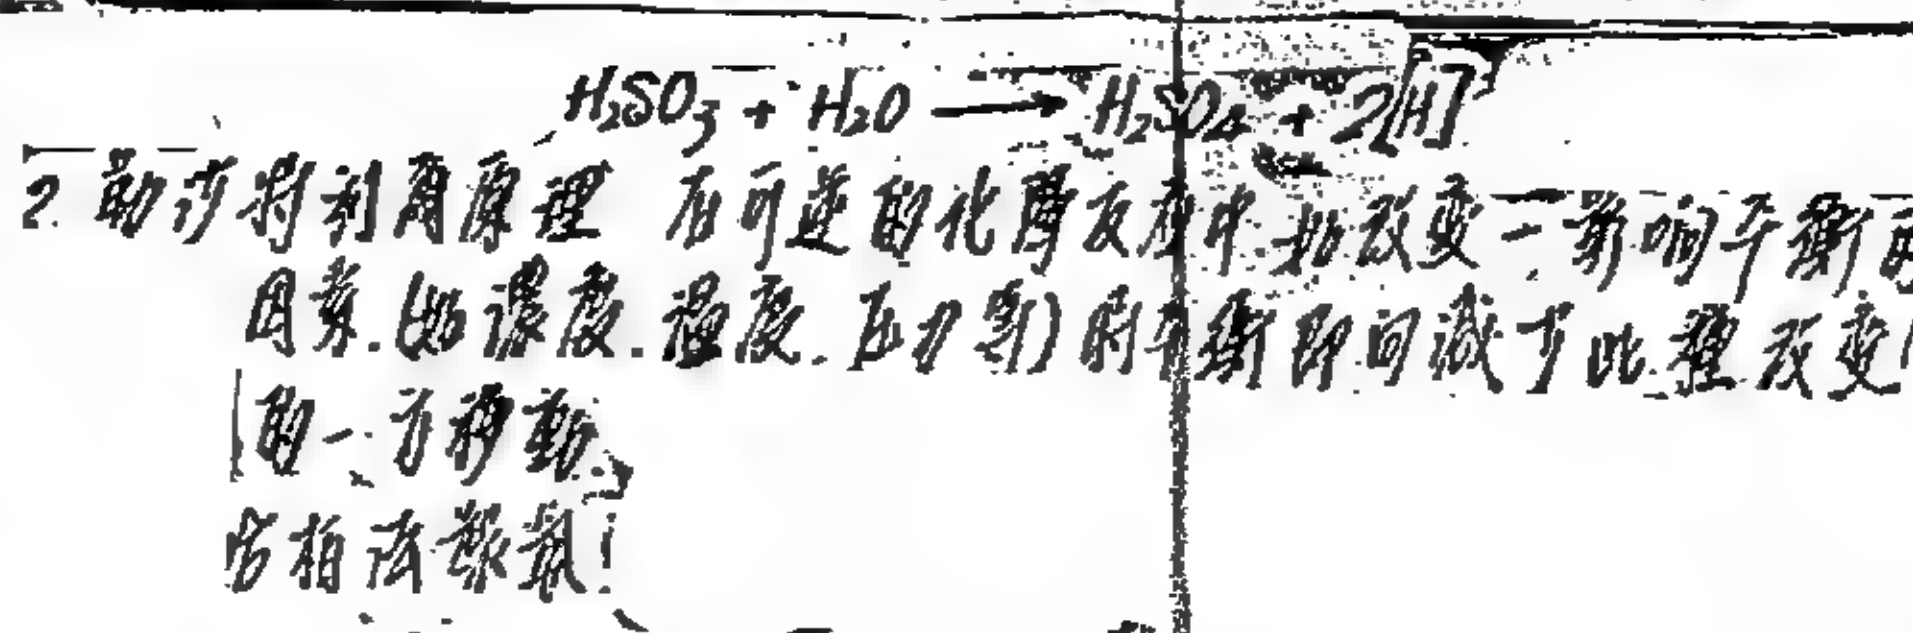 H₂SO₃ + H₂O ⟶ H₂SO₄ + 2[H]
2. 勒沙特利爾原理 在可逆的化學反應中 如改變一影响平衡的
因素.(如濃度.溫度.压力等)时平衡即向減少此種改变
的一方移動.
哈柏法製氨!